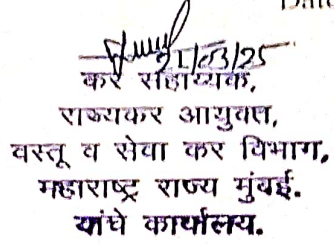 21/03/25
कर सहाय्यक,
राज्यकर आयुक्त,
वस्तू व सेवा कर विभाग,
महाराष्ट्र राज्य मुंबई.
यांचे कार्यालय.